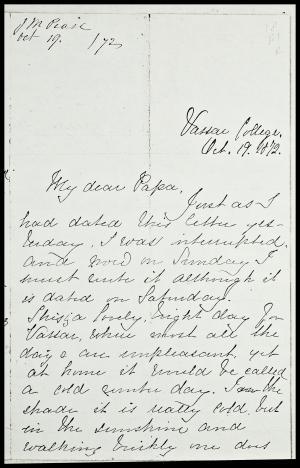 J M Pease
Oct 19. / 72
Vassar College,
Oct. 19. 1872.
My dear Papa,
Just as I
had dated this letter yes-
terday, I was interrupted.
and now on Sunday I
must write it although it
is dated on Saturday.
This is a lovely, bright day for
Vassar, where most all the
days are unpleasant, yet
at home it would be called
a cold winter day. In the
shade it is really cold, but
in the sunshine and
walking briskly one does